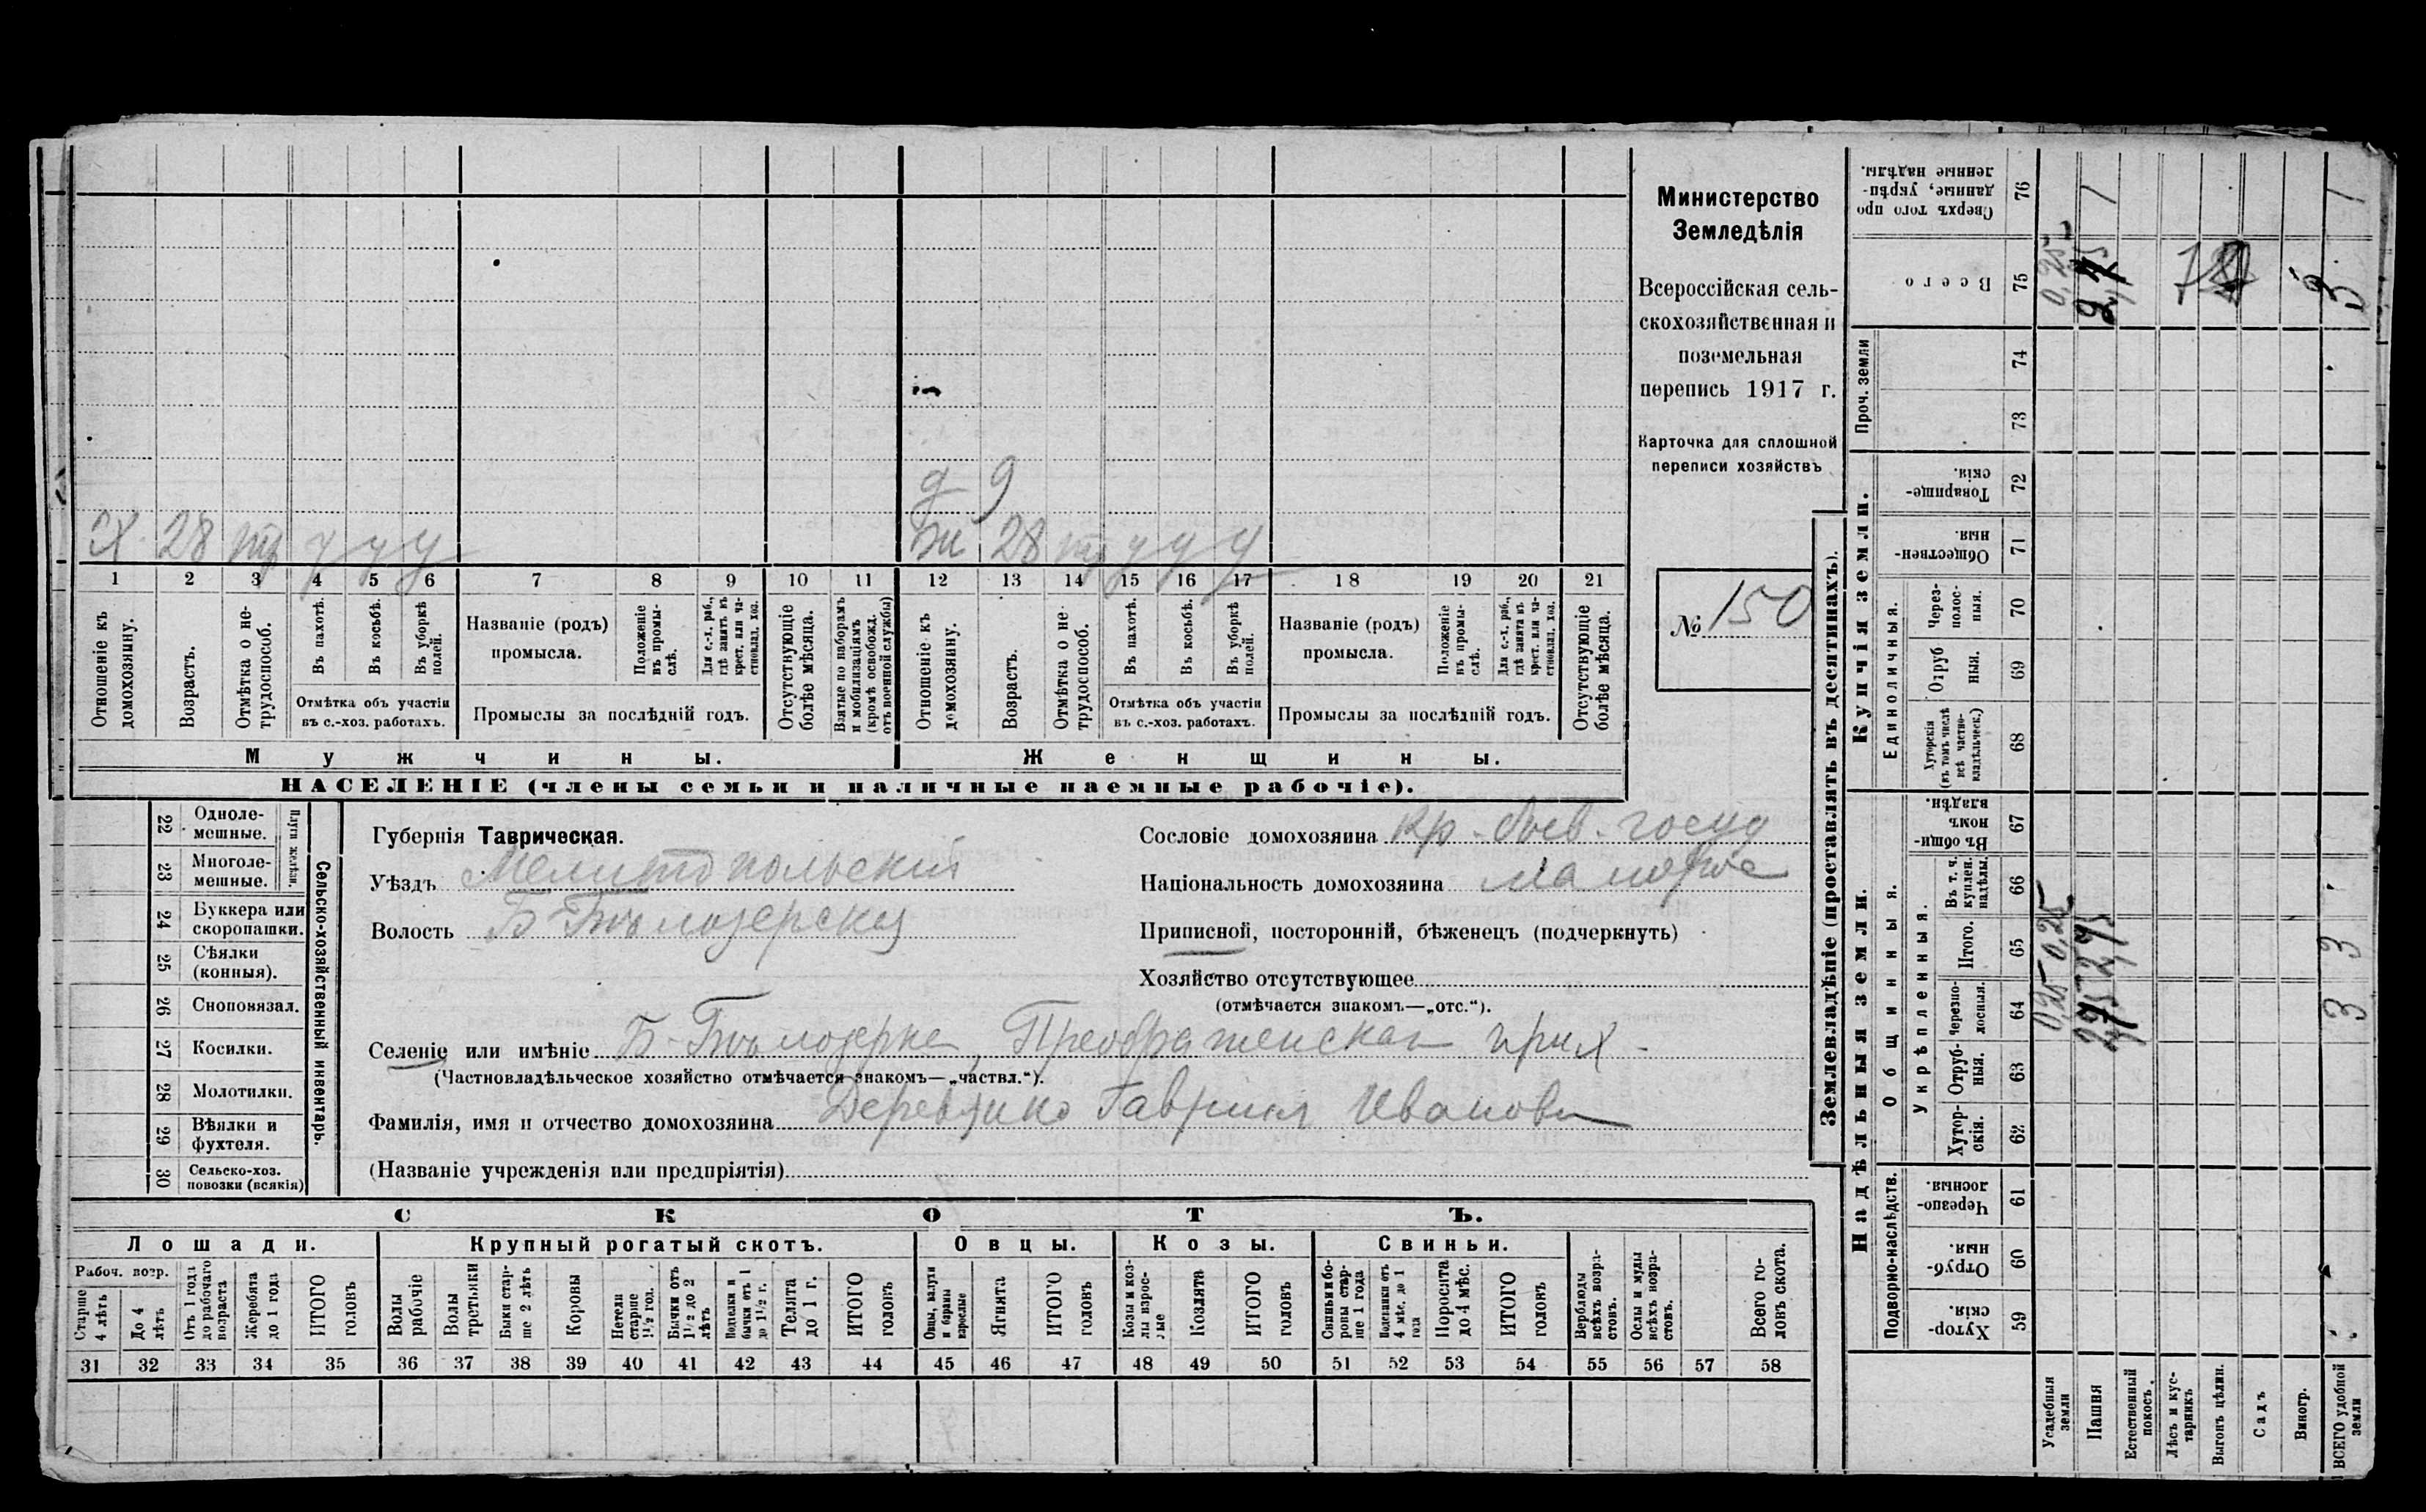 д 9
х 28 тр у у у
ж 28 тр у у у
1 2 3 4 5 6 7 8 9 10 11 12 13 14 15 16 17 18 19 20 21
Отношеніе къ домохозяину.
Возрастъ.
Отмѣтка о нетрудоспособ.
Въ пахотѣ.
Въ косьбѣ.
Въ уборкѣ полей.
Отмѣтка объ участіи
въ с.-хоз. работахъ.
Названіе (родъ)
промысла.
Положеніе въ промыслѣ.
Для с.-х. раб., гдѣ занятъ въ крест. или частновлад. хоз.
Промыслы за послѣдній годъ.
Отсутствующіе болѣе мѣсяца.
Взятые по наборамъ и мобилизаціямъ (кромѣ освобожд. отъ военной службы)
Отношеніе къ домохозяину.
Возрастъ.
Отмѣтка о нетрудоспособ.
Въ пахотѣ.
Въ косьбѣ.
Въ уборкѣ полей.
Отмѣтка объ участіи
въ с.-хоз. работахъ.
Названіе (родъ)
промысла.
Положеніе въ промыслѣ.
Для с.-х. раб., гдѣ занята въ крест. или частновлад. хоз.
Промыслы за послѣдній годъ.
Отсутствующіе болѣе мѣсяца.
Мужчины.
Женщины.
НАСЕЛЕНІЕ (члены семьи и наличные наемные рабочіе).
Министерство
Земледѣлія
Всероссійская сель-
скохозяйственная и
поземельная
перепись 1917 г.
Карточка для сплошной
переписи хозяйствъ
№ 150
22 Однолемешные.
23 Многолемешные.
Плуги желѣзн.
24 Буккера или скоропашки.
25 Сѣялки (конныя).
26 Сноповязал.
27 Косилки.
28 Молотилки.
29 Вѣялки и фухтеля.
30 Сельско-хоз. повозки (всякія)
Сельско-хозяйственный инвентарь.
Губернія Таврическая.
Уѣздъ Мелитопольскій
Волость Б-Бѣлозерская
Сословіе домохозяина кр. быв. госуд
Національность домохозяина малорос
Приписной, посторонній, бѣженецъ (подчеркнуть)
Хозяйство отсутствующее
(отмѣчается знакомъ—„отс.“).
Селеніе или имѣніе Б-Бѣлозерка, Преображенская прих
(Частновладѣльческое хозяйство отмѣчается знакомъ—„частвл.“).
Фамилія, имя и отчество домохозяина Деревянко Гавриил Иванови
(Названіе учрежденія или предпріятія)
СКОТЪ.
Лошади. Крупный рогатый скотъ. Овцы. Козы. Свиньи.
Рабоч. возр.
Старше 4 лѣтъ
До 4 лѣтъ
Отъ 1 года до рабочаго возраста
Жеребята до 1 года
ИТОГО головъ
Волы рабочіе
Волы третьяки
Быки старше 2 лѣтъ
Коровы
Нетели старше 1½ год.
Бычки отъ 1½ до 2 лѣтъ
Подтелки и бычки отъ 1 до 1½ г.
Телята до 1 г.
ИТОГО головъ
Овцы, валухи и бараны взрослые
Ягнята
ИТОГО головъ
Козы и козлы взрослые
Козлята
ИТОГО головъ
Свиньи и боровы старше 1 года
Подсвинки отъ 4 мѣс. до 1 года
Поросята до 4 мѣс.
ИТОГО головъ
Верблюды всѣхъ возрастовъ.
Ослы и мулы всѣхъ возрастовъ.
Всего головъ скота.
31 32 33 34 35 36 37 38 39 40 41 42 43 44 45 46 47 48 49 50 51 52 53 54 55 56 57 58
Землевладѣніе (проставлять въ десятинахъ).
Надѣльныя земли.
Купчія земли.
Проч. земли
Подворно-наслѣдств.
Общинныя.
Укрѣпленныя.
Единоличныя.
Сверхъ того проданные, укрѣпленные надѣлы. 76
Всего 75
74
73
Товарищескія. 72
Общественныя. 71
Черезполосныя. 70
Отрубныя. 69
Хуторскія (въ томъ числѣ всѣ частновладѣльческ.) 68
Въ общиномъ владѣн. 67
Въ т. ч. куплен. надѣлы. 66
Итого. 65
Черезполосныя. 64
Отрубныя. 63
Хуторскія. 62
Черезполосныя. 61
Отрубныя. 60
Хуторскія. 59
Усадебныя земли 0,25 0,25
Пашня 2,75 2,75
Естественный покосъ.
Лѣсъ и кустарникъ
Выгонъ цѣлин.
Садъ
Виногр.
ВСЕГО удобной земли 3 3 3 1